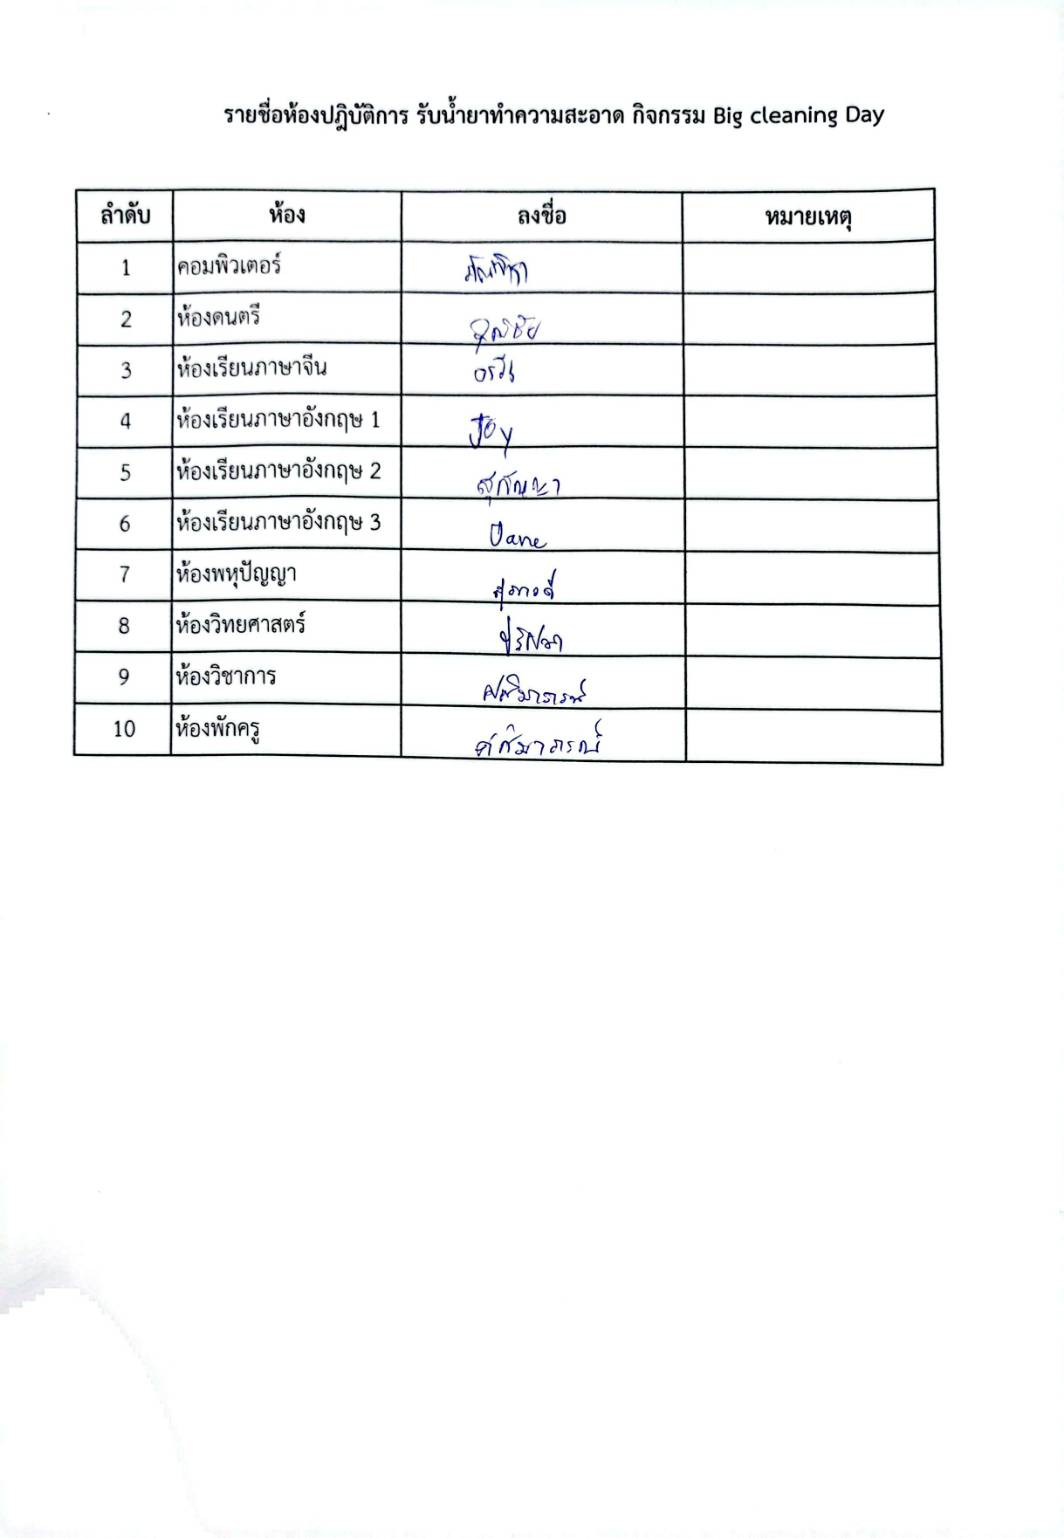 รายชื่อห้องปฏิบัติการ รับน้ำยาทำความสะอาด กิจกรรม Big cleaning Day
ลำดับ ห้อง ลงชื่อ หมายเหตุ
1 คอมพิวเตอร์
2 ห้องดนตรี
3 ห้องเรียนภาษาจีน
4 ห้องเรียนภาษาอังกฤษ 1 Joy
5 ห้องเรียนภาษาอังกฤษ 2 สุกัญญา
6 ห้องเรียนภาษาอังกฤษ 3
7 ห้องพหุปัญญา
8 ห้องวิทยศาสตร์
9 ห้องวิชาการ
10 ห้องพักครู